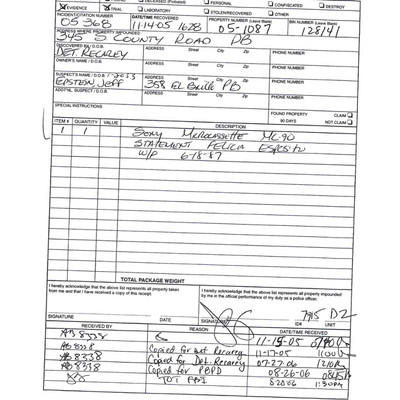 FOUND DECEASED (Probated) PERSONAL CONFISCATED
EVIDENCE TRIAL LABORATORY STOLEN/RECOVERED OTHER DESTROY
INCIDENT/CITATION NUMBER DATE/TIME RECOVERED PROPERTY NUMBER (Leave Blank) BIN (Leave Blank)
05 368 11-14-05 1628 05-1087 128141
ADDRESS WHERE PROPERTY IMPOUNDED
345 S COUNTY ROAD PB
DISCOVERED BY / D.O.B. ADDRESS Street City Zip PHONE NUMBER
DET. RECAREY
OWNER'S NAME / D.O.B. ADDRESS Street City Zip PHONE NUMBER
SUSPECT'S NAME / D.O.B. ADDRESS Street City Zip PHONE NUMBER
EPSTEIN, JEFF 358 El Brillo PB
ADDT'NL SUSPECT / D.O.B. ADDRESS Street City Zip PHONE NUMBER
SPECIAL INSTRUCTIONS FOUND PROPERTY CLAIM
90 DAYS NO CLAIM
ITEM # QUANTITY VALUE DESCRIPTION
1 1 SONY MICROCASSETTE MC90
STATEMENT FELICIA ESPOSITO
W/F 6-18-87
TOTAL PACKAGE WEIGHT
I hereby acknowledge that the above list represents all property taken
from me and that I have received a copy of this receipt.
I hereby acknowledge that the above list represents all property impounded
by me in the official performance of my duty as a police officer.
7915 D2
SIGNATURE DATE SIGNATURE ID# UNIT
RECEIVED BY REASON DATE/TIME RECEIVED
8338 11-15-05
8338 Copied for Det Recarey 11-17-05
8338 Copied for Det. Recarey 07-27-06
8338 Copied for PBPD 08-26-06 0845
TOT FBI 1:30pm